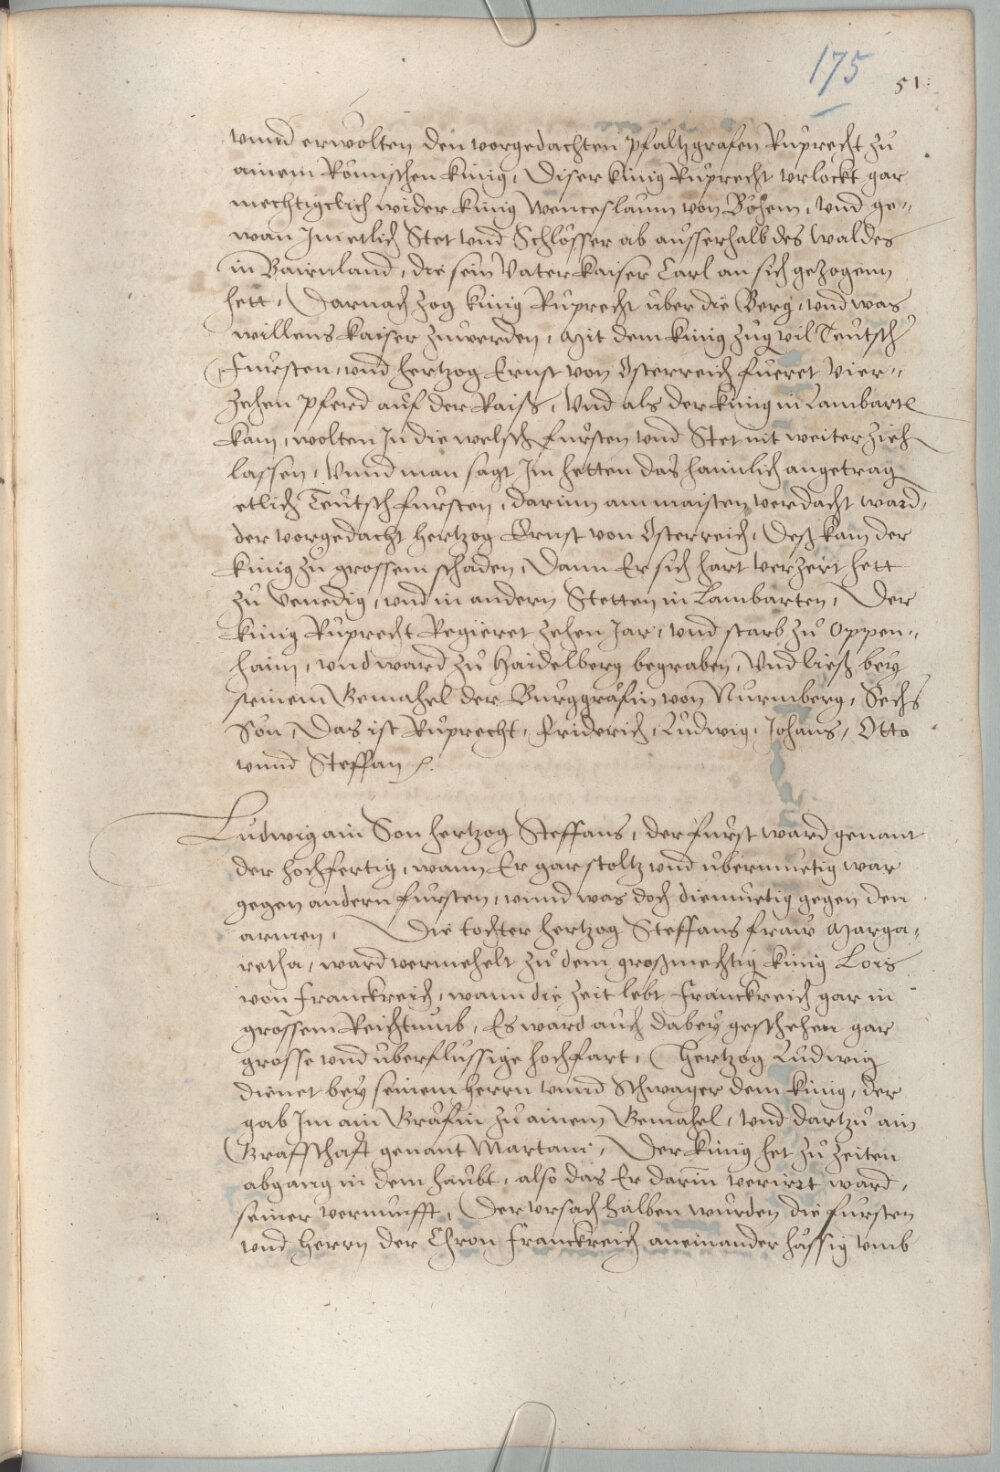 175
51
vnnd erwölten den vorgedachten Pfaltzgrafen Růprecht zů
ainem Römischen künig, Diser künig Růprecht vrlockt gar
mechtigclich wider künig Wenceslaum von Böhem, Vnd ge„
wan Jm etlich Stet vnd Schlösser ab ausserhalb des waldes
in Bairnland, die sein Vater kaiser Carl an sich gezogenn
hett, Darnach zog künig Růprecht über die Berg, vnd was
willens kaiser zůwerden, Mit dem künig zůg vil Teutsch
Fürsten, vnd hertzog Ernst von Österreich fueret Vier„
zehen Pferd auf der Raiß, Vnd als der künig in Lambart
kam, wolten Jn die welsch fürsten vnd Stet nit weiter zieh
lassen, Vnnd man sagt Jm hetten das haimlich angetrag
etlich Teutsch fürsten, darinn am maisten verdacht ward,
der vorgedacht hertzog Ernst von Österreich, Deß kam der
künig zů grossem schaden, Dann Er sich hart verzert hett
zů Venedig, vnd in andern Stetten in Lambarten, Der
künig Růprecht Regieret zehen Jar, vnd starb zů Oppen„
haim, vnd ward zů Haidelberg begraben, Vnd ließ bey
seinem Gemahel der Burggräfin von Nürmberg, Sechs
Sön, Das ist Růprecht, Friderich, Ludwig, Johans, Otto
vnnd Steffan.
Ludwig ain Son hertzog Steffans, der fürst ward genant
der hochfertig, wann Er gar stoltz vnd übermüetig war
gegen andern fürsten, vnnd was doch diemüetig gegen den
armen, Die tochter hertzog Steffans fraw Marga„
retha, ward vermehelt zů dem großmechtig künig Lois
von Franckreich, wann die zeit lebt Franckreich gar in
grossem Reichtumb, Es ward auch dabey geschehen gar
grosse vnd überflüssige hochfart, Hertzog Ludwig
dienet bey seinem herrn vnnd Schwager dem künig, der
gab Jm ain Gräfin zů ainem Gemahel, vnd dartzů ain
Grafschaft genant Martani, Der künig het zů zeiten
abgang in dem haubt, also das Er darin verirrt ward,
seiner vernunfft, Der vrsach halben wurden die fürsten
vnd herrn der Chron Franckreich aneinander hässig vmb